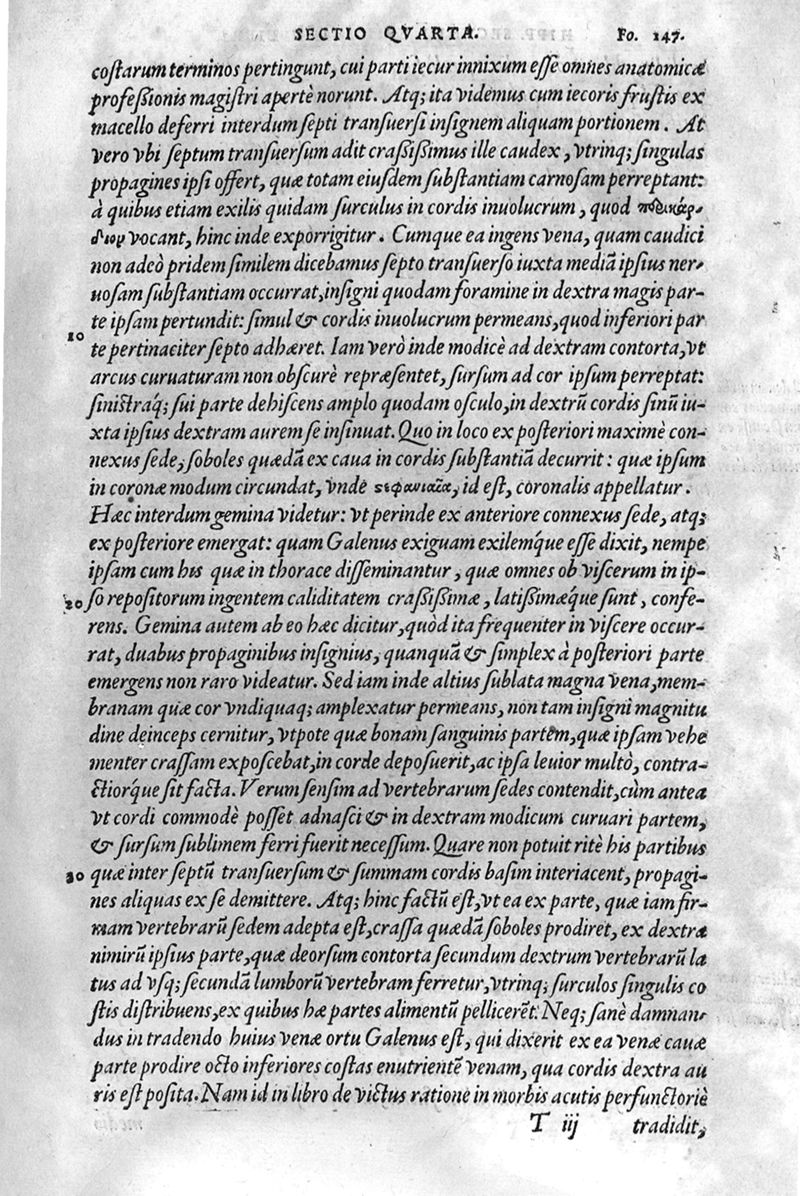 SECTIO QVARTA. Fo. 147.
coſtarum terminos pertingunt, cui parti iecur innixum eſſe omnes anatomicæ
profeßionis magiſtri apertè norunt. Atq; ita videmus cum iecoris fruſtis ex
macello deferri interdum ſepti tranſuerſi inſignem aliquam portionem. At
vero vbi ſeptum tranſuerſum adit craßißimus ille caudex, vtrinq; ſingulas
propagines ipſi offert, quæ totam eiuſdem ſubſtantiam carnoſam perreptant:
à quibus etiam exilis quidam ſurculus in cordis inuolucrum, quod
vocant, hinc inde exporrigitur. Cumque ea ingens vena, quam caudici
non adeò pridem ſimilem dicebamus ſepto tranſuerſo iuxta mediã ipſius ner-
uoſam ſubſtantiam occurrat, inſigni quodam foramine in dextra magis par-
te ipſam pertundit: ſimul & cordis inuolucrum permeans, quod inferiori par
10 te pertinaciter ſepto adhæret. Iam verò inde modicè ad dextram contorta, vt
arcus curuaturam non obſcurè repræſentet, ſurſum ad cor ipſum perreptat:
ſiniſtraq́; ſui parte dehiſcens amplo quodam oſculo, in dextrũ cordis ſinũ iu-
xta ipſius dextram aurem ſe inſinuat. Quo in loco ex poſteriori maximè con-
nexus ſede, ſoboles quædã ex caua in cordis ſubſtantiã decurrit: quæ ipſum
in coronæ modum circundat, vnde ςεφανιαῖα, id eſt, coronalis appellatur.
Hæc interdum gemina videtur: vt perinde ex anteriore connexus ſede, atq;
ex poſteriore emergat: quam Galenus exiguam exilemq́ue eſſe dixit, nempe
ipſam cum his quæ in thorace diſſeminantur, quæ omnes ob viſcerum in ip-
20 ſo repoſitorum ingentem caliditatem craßißimæ, latißimæq́ue ſunt, confe-
rens. Gemina autem ab eo hæc dicitur, quòd ita frequenter in viſcere occur-
rat, duabus propaginibus inſignius, quanquã & ſimplex à poſteriori parte
emergens non raro videatur. Sed iam inde altius ſublata magna vena, mem-
branam quæ cor vndiquaq; amplexatur permeans, non tam inſigni magnitu
dine deinceps cernitur, vtpote quæ bonam ſanguinis partem, quæ ipſam vehe
menter craſſam expoſcebat, in corde depoſuerit, ac ipſa leuior multò, contra-
ctiorq́ue ſit facta. Verum ſenſim ad vertebrarum ſedes contendit, cùm antea
vt cordi commodè poſſet adnaſci & in dextram modicum curuari partem,
& ſurſum ſublimem ferri fuerit neceſſum. Quare non potuit ritè his partibus
30 quæ inter ſeptũ tranſuerſum & ſummam cordis baſim interiacent, propagi-
nes aliquas ex ſe demittere. Atq; hinc factũ eſt, vt ea ex parte, quæ iam fir-
mam vertebrarũ ſedem adepta eſt, craſſa quædã ſoboles prodiret, ex dextra
nimirũ ipſius parte, quæ deorſum contorta ſecundum dextrum vertebrarũ la
tus ad vſq; ſecundã lumborũ vertebram ferretur, vtrinq; ſurculos ſingulis co
ſtis diſtribuens, ex quibus hæ partes alimentũ pellicerẽt. Neq; ſanè damnan-
dus in tradendo huius venæ ortu Galenus eſt, qui dixerit ex ea venæ cauæ
parte prodire octo inferiores coſtas enutrientẽ venam, qua cordis dextra au
ris eſt poſita. Nam id in libro de victus ratione in morbis acutis perfunctoriè
T iij tradidit,